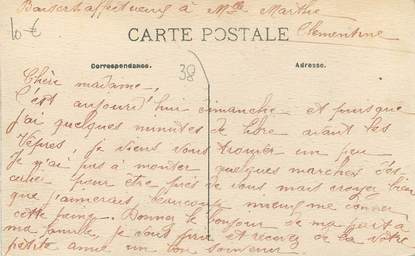 Baisers affectueux à Mlle Marthe
Clémentine
10 €
CARTE POSTALE
Correspondance.
Adresse.
38
Chère madame,
C'est aujourd'hui dimanche et puisque
j'ai quelques minutes de libre avant les
Vêpres, je viens vous trouver un peu
Je n'ai pas à monter quelques marches d'es-
calier pour être près de vous mais croyez bien
que j'aimerais beaucoup mieux me donner
cette peine. Donnez le bonjour de ma part à
ma famille, je vous prie et recevez de la vôtre
petite amie un bon souvenir